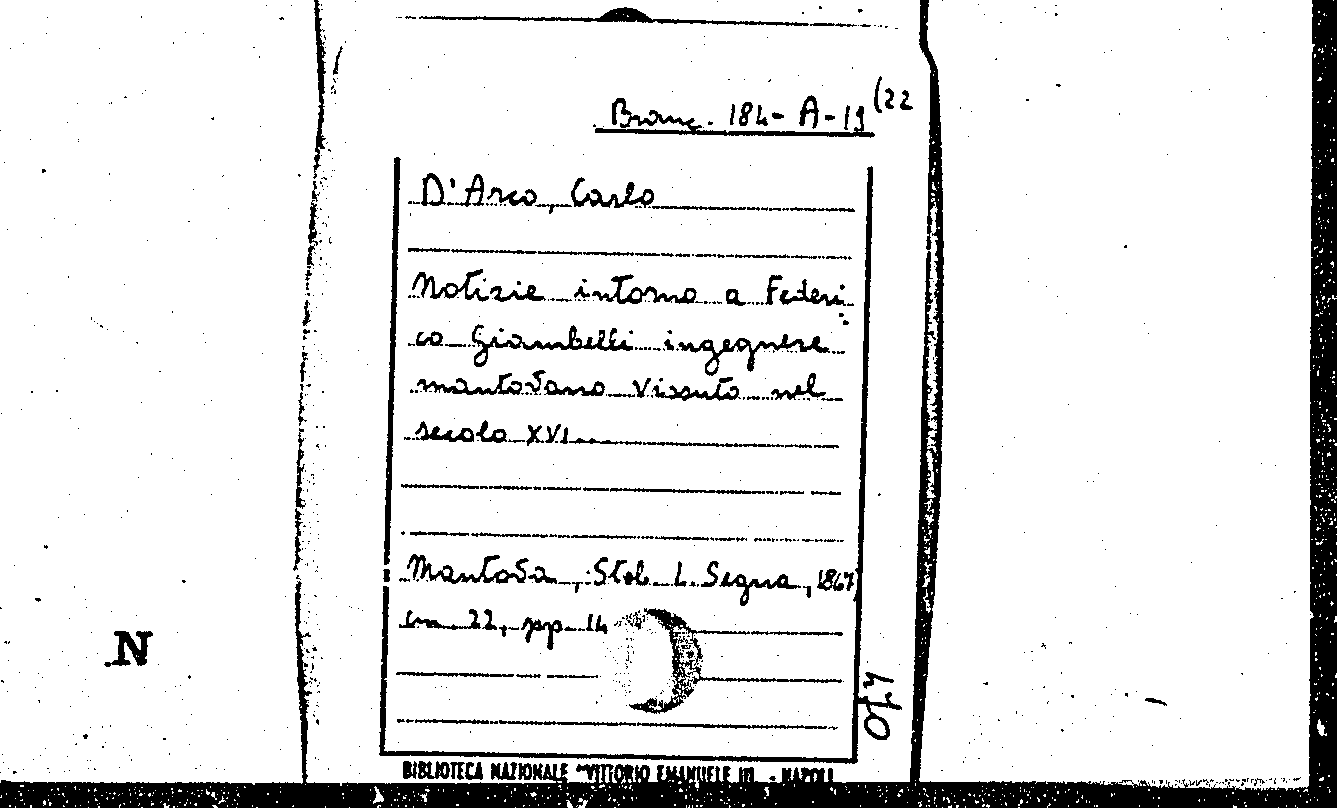 Branc. 184-A-19 (22
D'Arco, Carlo
Notizie intorno a Federi
co Giambelli ingegnere
mantovano vissuto nel
secolo XVI...
Mantova, Stab. L. Segna, 1867
cm. 22, pp. 14
N
BIBLIOTECA NAZIONALE "VITTORIO EMANUELE III - NAPOLI